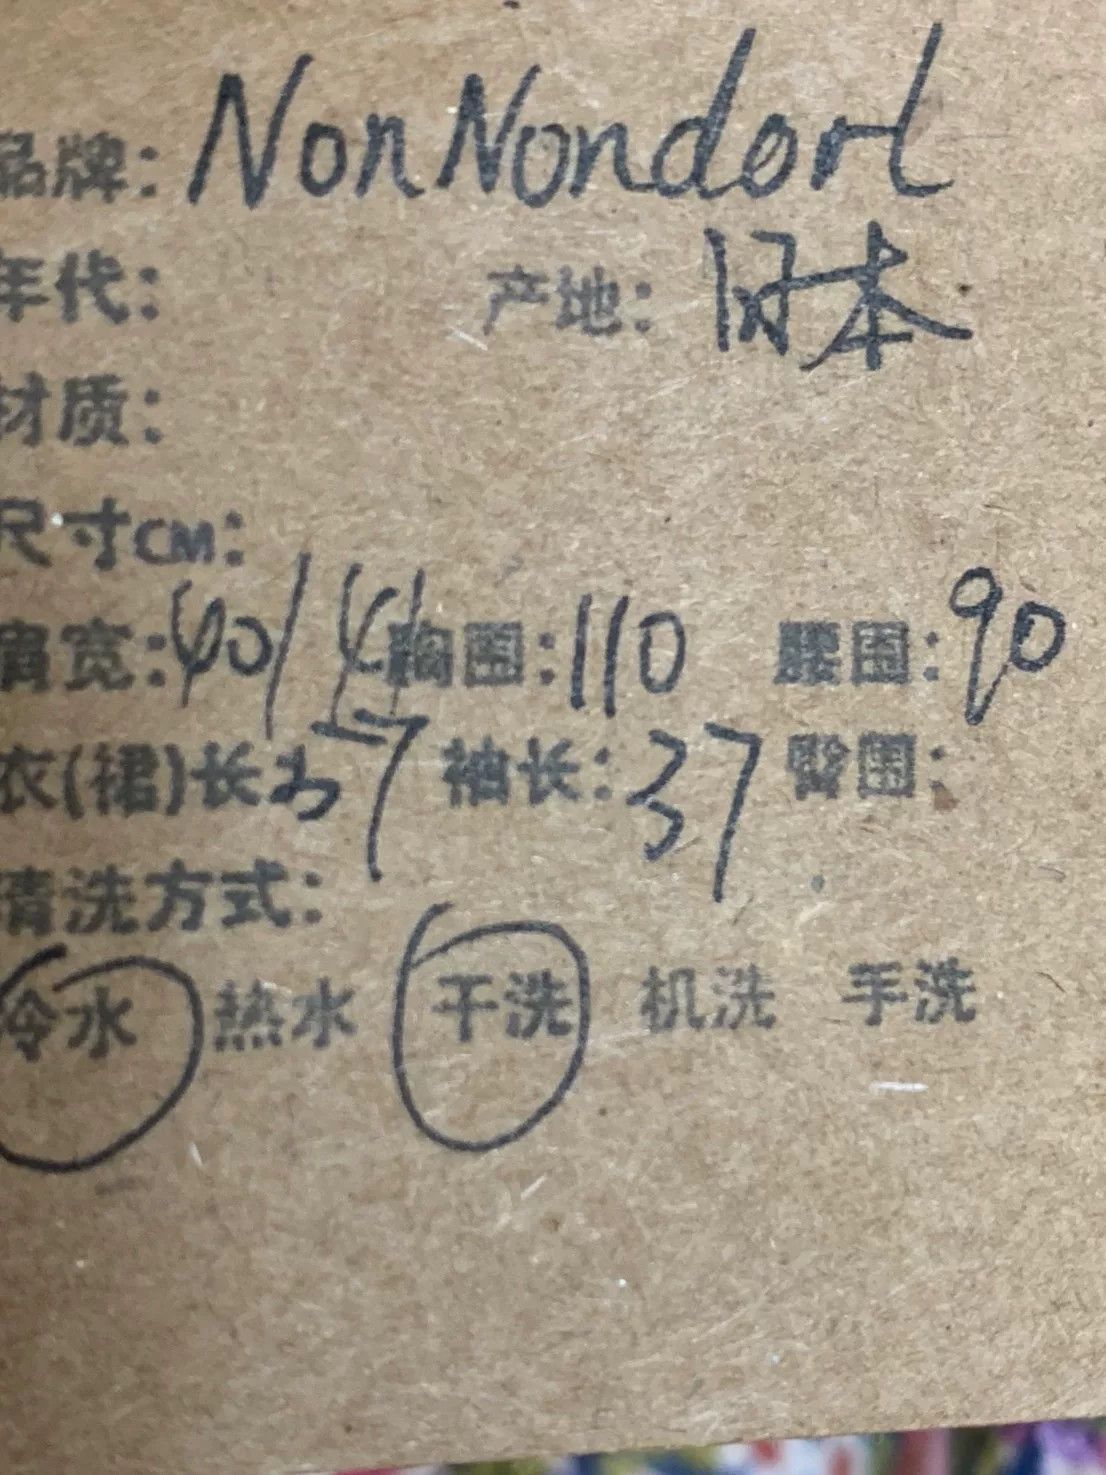 品牌: NonNondorl
年代: 产地: 日本
材质:
尺寸CM:
肩宽: 40/ 胸围: 110 腰围: 90
衣(裙)长 57 袖长: 37 臀围:
清洗方式:
冷水 热水 干洗 机洗 手洗